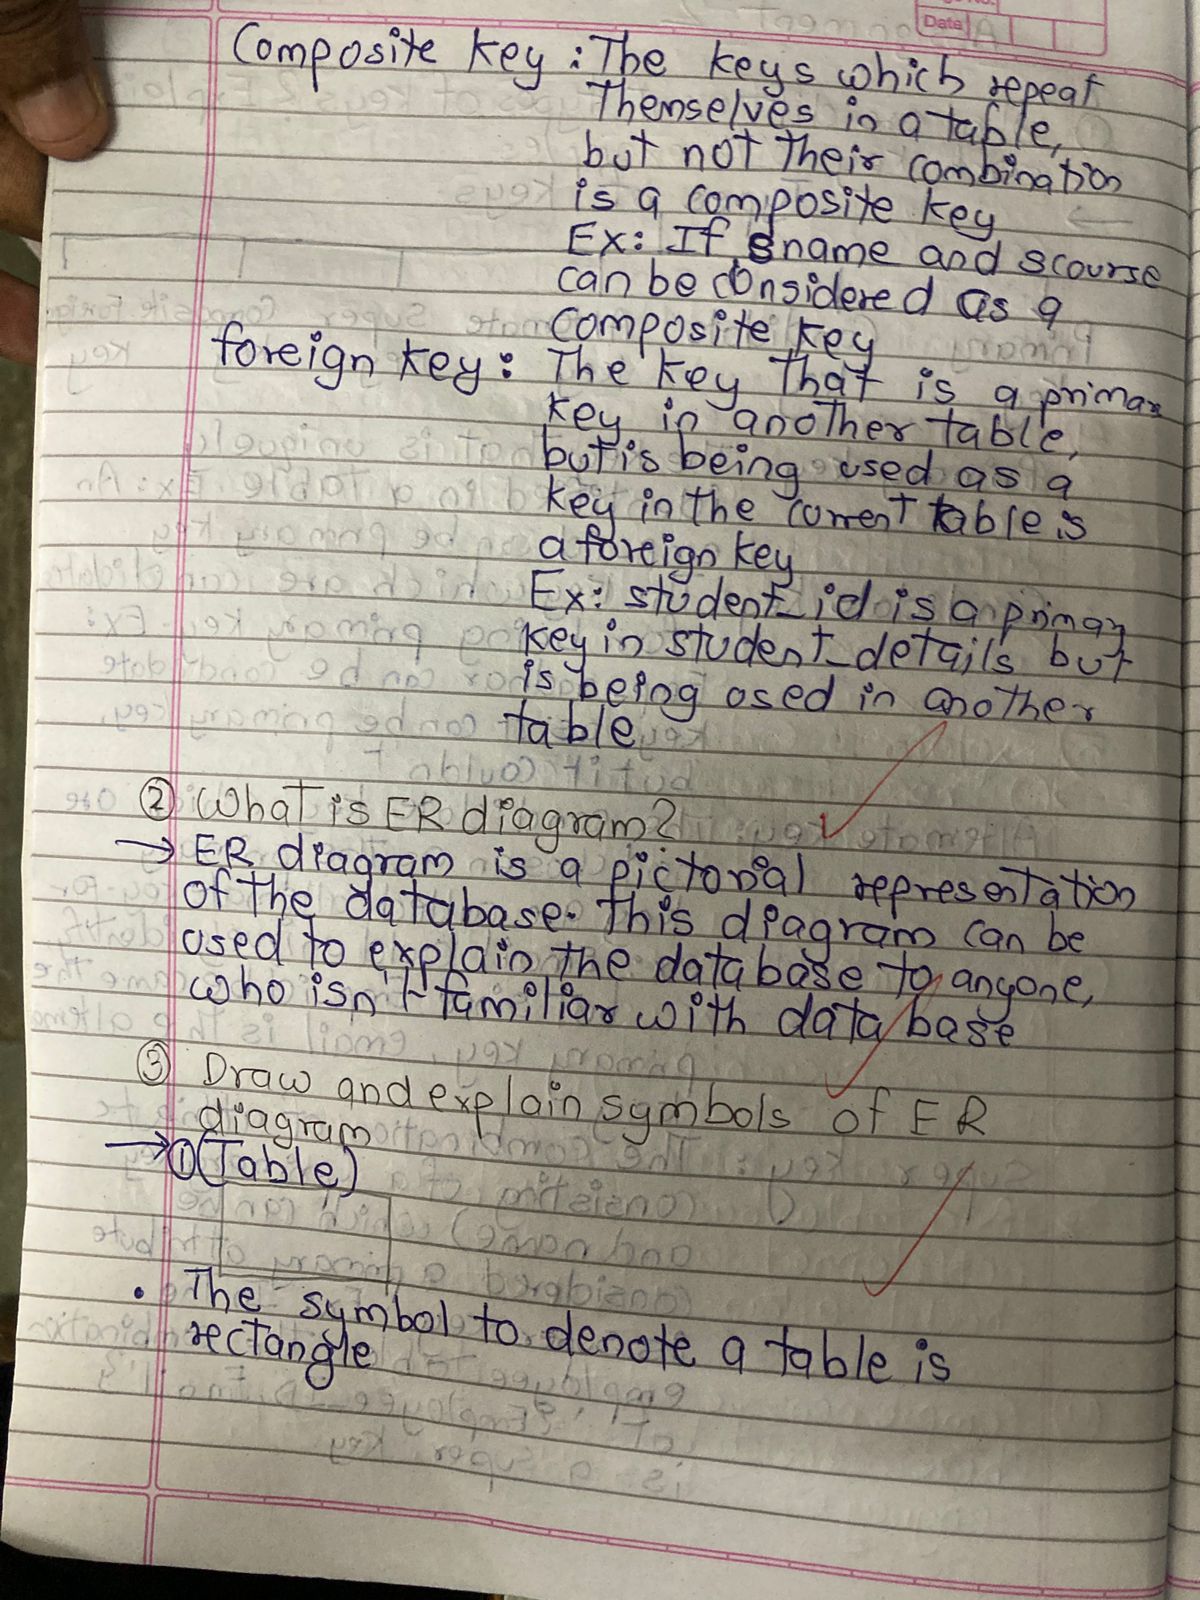 Date
Composite key : The keys which repeat
Themselves in a table,
but not their combination
is a composite key
Ex: If sname and scourse
can be considered as a
composite key
foreign key: The key that is a primary
key in another table,
but is being used as a
key in the current table is
a foreign key
Ex: student_id is a primary
key in student_details but
is being used in another
table
② What is ER diagram?
→ ER diagram is a pictorial representation
of the database. This diagram can be
used to explain the database to anyone,
who isn't familiar with data base
③ Draw and explain symbols of ER
diagram
→ ① (Table)
• The symbol to denote a table is
rectangle